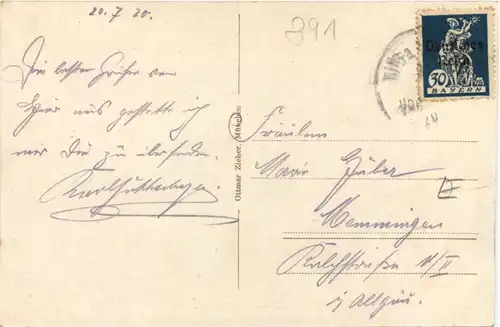 20.7.20.
391
Die besten Grüße von
hier aus gestatte ich
mir Dir zu übersenden.
Ottmar Zieher, München
Deutsches
Reich
30
BAYERN
Fräulein
Marie Huber
Memmingen
Kalchstraße 11/II
i/ Allgäu.